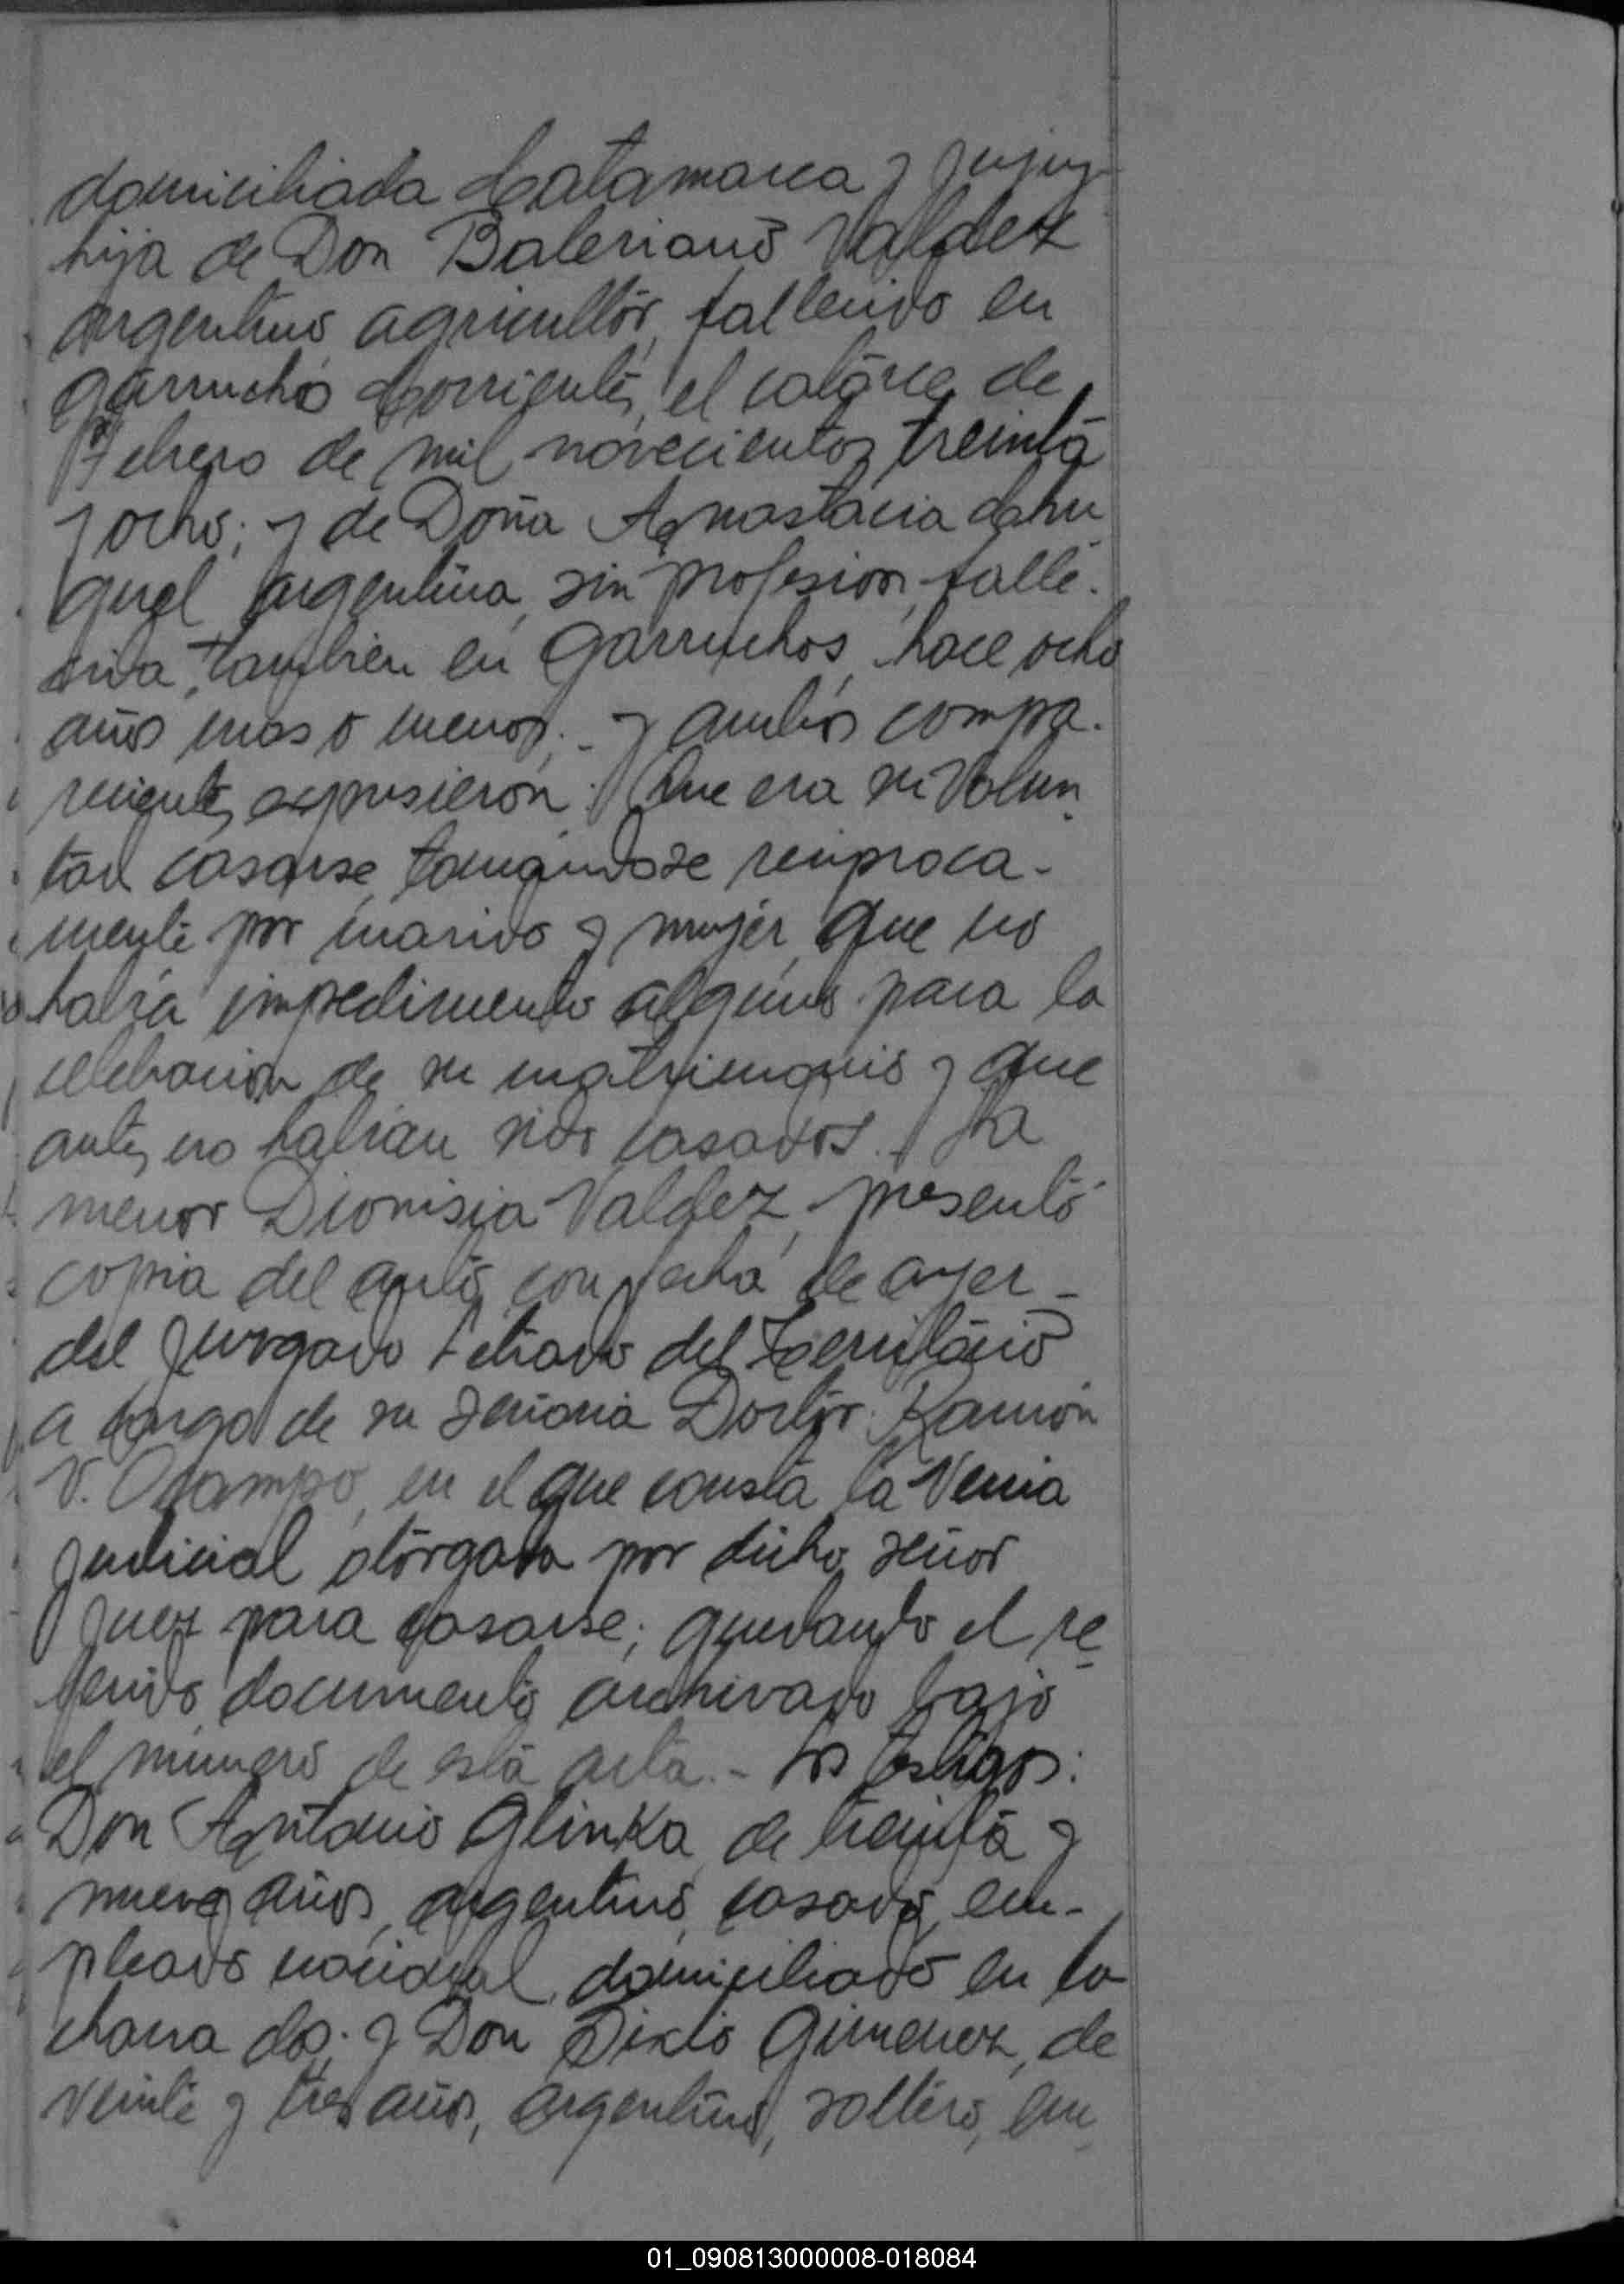 domiciliada Catamarca y Jujuy
hija de Don Baleriano Valdez
argentino, agricultor, fallecido en
Garruchos Corrientes, el catorce de
Febrero de mil novecientos treinta
y ocho; y de Doña Anastacia
argentina, sin profesion, falle-
cida, tambien en Garruchos, hace ocho
años mas o menos.- y ambos compa-
recientes, expusieron: Que era su volun-
tad casarse, tomandose reciproca-
mente por marido y mujer, que no
habia impedimento alguno para la
celebracion de su matrimonio y que
antes no habian sido casados. La
menor Dionisia Valdez, presentó
copia del auto, con fecha de ayer -
del Juzgado Letrado del Territorio
a cargo de su Señoria Doctor Ramón
V. Ocampo, en el que consta la Venia
judicial otorgada por dicho señor
Juez para casarse; quedando el re-
ferido documento archivado bajo
el numero de esta acta.- Los testigos:
Don Antonio Glinka, de treinta y
nueve años, argentino, casado, em-
pleado nacional, domiciliado en la
chacra dos; y Don Sixto Gimenez, de
veinte y tres años, argentino, soltero, em-
01_090813000008-018084